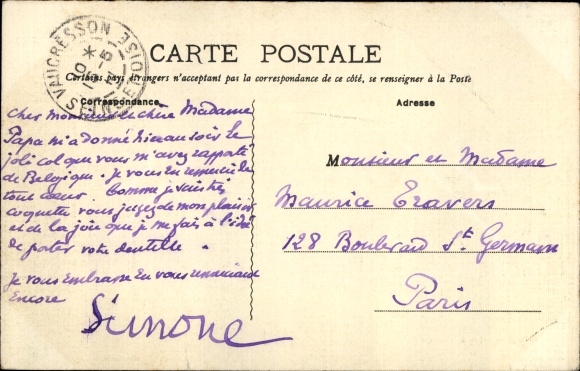 CARTE POSTALE
Certains pays étrangers n'acceptant pas la correspondance de ce côté, se renseigner à la Poste
VAUCRESSON
SEINE-ET-OISE
Correspondance
Adresse
Cher Monsieur et chère Madame
Papa m'a donné hier au soir le
joli col que vous m'avez rapporté
de Belgique. Je vous en remercie de
tout cœur. Comme je suis très
coquette vous jugez de mon plaisir
et de la joie que je me fais à l'idée
de porter votre dentelle.
Je vous embrasse en vous remerciant
Encore
Simone
Monsieur et Madame
Maurice Travers
128 Boulevard St. Germain
Paris